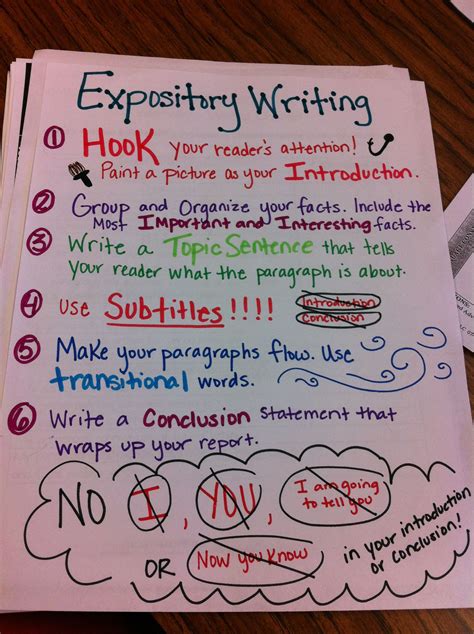 Expository Writing
① HOOK your reader's attention!
Paint a picture as your Introduction.
② Group and Organize your facts. Include the
Most Important and Interesting facts.
③ Write a Topic Sentence that tells
your reader what the paragraph is about.
④ Use Subtitles!!!!
Introduction
Conclusion
⑤ Make your paragraphs flow. Use
transitional words.
⑥ Write a Conclusion statement that
wraps up your report.
NO I, YOU, I am going
to tell you
OR Now you know
in your introduction
or conclusion!